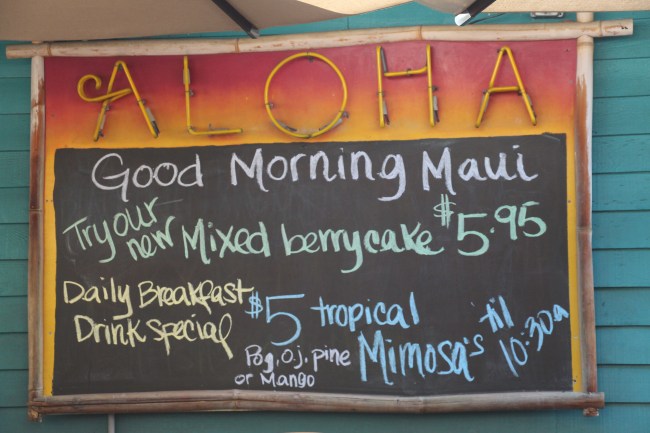 ALOHA
Good Morning Maui
Try our new Mixed berry cake $5.95
Daily Breakfast Drink Special
$5 tropical Mimosa's 'til 10:30a
Pog, o.j. pine
or Mango